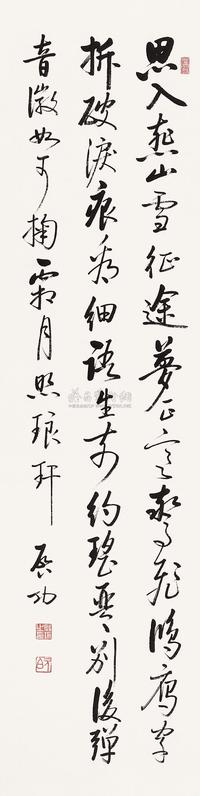 思入燕山雪征途夢正寒驚飛鴻鴈字
拆破淚痕看細語生前約瑤琴別後彈
音徽如可掬霜月照琅玕 啟功